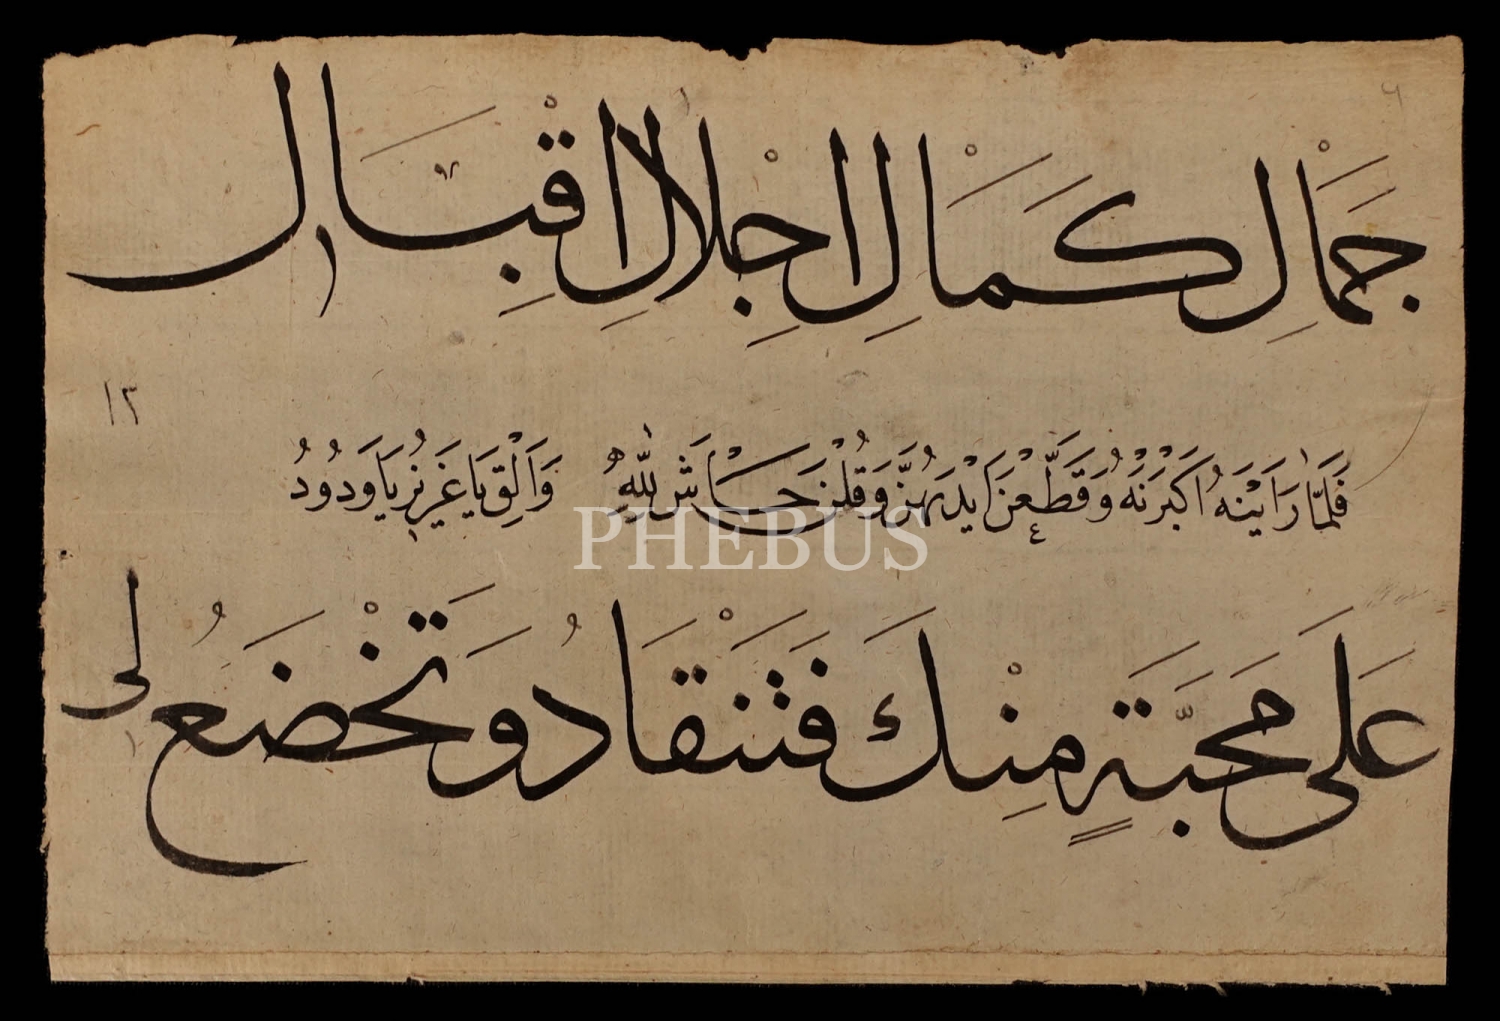 جَمَالِ كَمَالِ اِجْلَالِ اِقْبَال
١٢
فَلَمَّا رَاَيْنَهُ اَكْبَرْنَهُ وَقَطَّعْنَ اَيْدِيَهُنَّ وَقُلْنَ حَاشَ لِلّٰهِ وَاَلْقِ يَا عَزِيزُ يَا وَدُودُ
PHEBUS
عَلَى مَحَبَّةٍ مِنْكَ فَتَنْقَادُ وَتَخْضَعُ لى